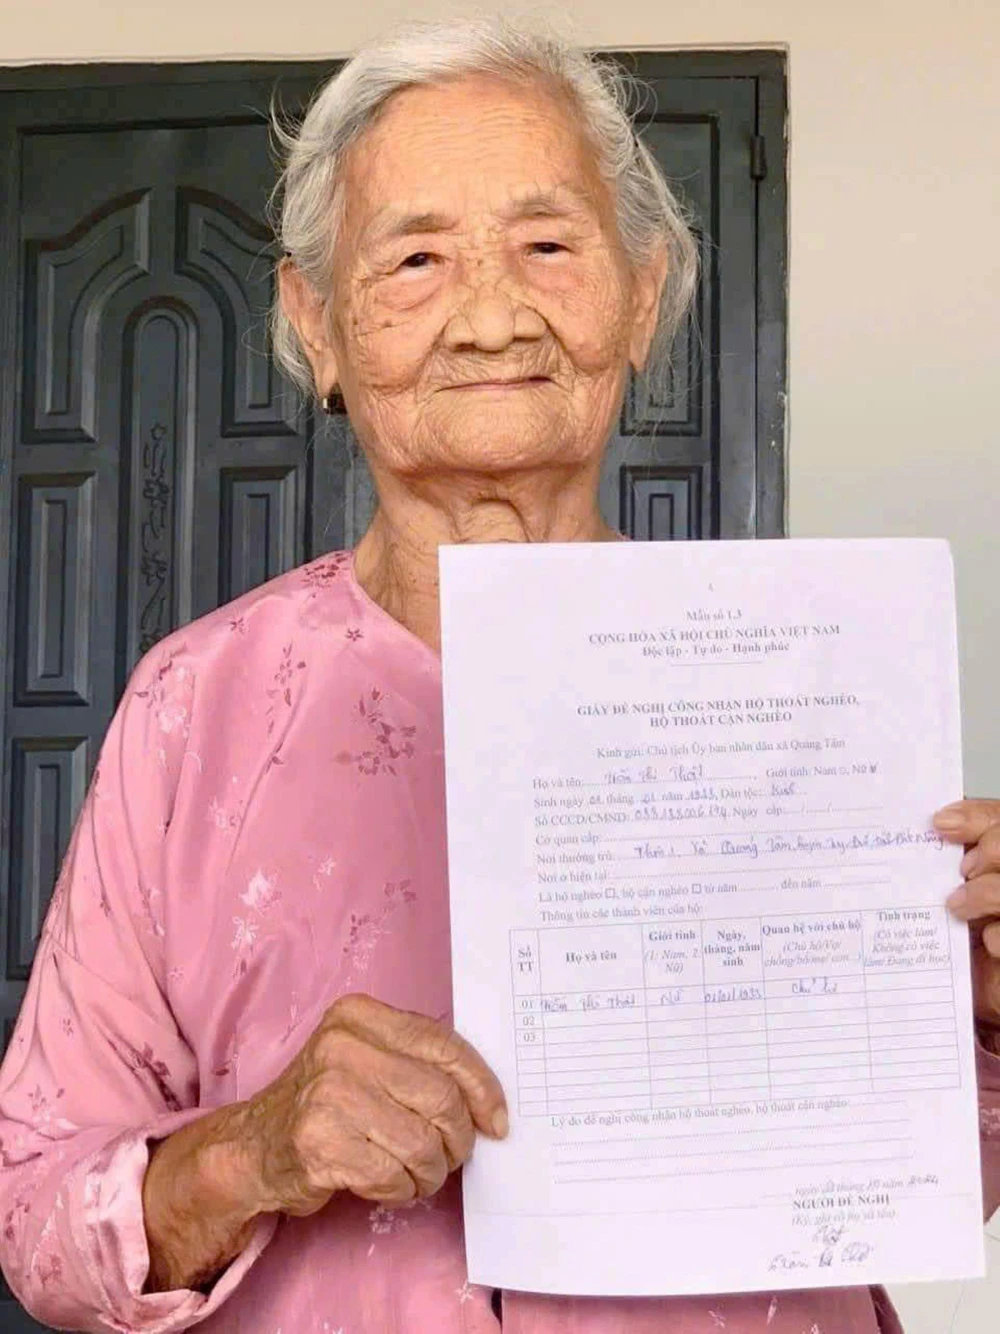 Mẫu số 1.3
CỘNG HÒA XÃ HỘI CHỦ NGHĨA VIỆT NAM
Độc lập - Tự do - Hạnh phúc
GIẤY ĐỀ NGHỊ CÔNG NHẬN HỘ THOÁT NGHÈO,
HỘ THOÁT CẬN NGHÈO
Kính gửi: Chủ tịch Ủy ban nhân dân xã Quảng Tâm
Họ và tên: Trần Thị Thật, Giới tính: Nam □, Nữ
Sinh ngày 01 tháng 01 năm 1933, Dân tộc: Kinh
Số CCCD/CMND: Ngày cấp: / /
Cơ quan cấp:
Nơi thường trú: Thôn 1, Xã Quảng Tâm, huyện Tuy Đức, tỉnh Đắk Nông
Nơi ở hiện tại:
Là hộ nghèo □, hộ cận nghèo □ từ năm đến năm
Thông tin các thành viên của hộ:
Số TT Họ và tên Giới tính (1: Nam, 2: Nữ) Ngày, tháng, năm sinh Quan hệ với chủ hộ (Chủ hộ/Vợ/chồng/bố/mẹ/con...) Tình trạng (Có việc làm/Không có việc làm/Đang đi học)
01 Trần Thị Thật Nữ 01/01/1933 Chủ hộ
02
03
Lý do đề nghị công nhận hộ thoát nghèo, hộ thoát cận nghèo:
ngày tháng 10 năm 2024
NGƯỜI ĐỀ NGHỊ
(Ký, ghi rõ họ và tên)
Thật
Trần Thị Thật